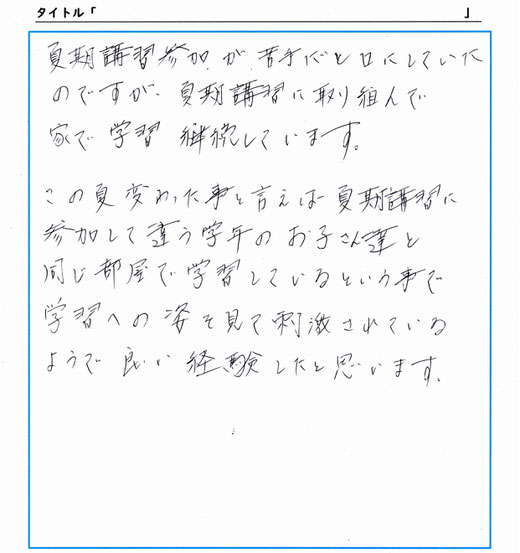 タイトル「 」
夏期講習参加が苦手だと口にしていた
のですが、夏期講習に取り組んで
家で学習 継続しています。
この夏変わった事と言えば夏期講習に
参加して違う学年のお子さん達と
同じ部屋で学習しているという事で
学習への姿を見て刺激されている
ようで良い経験したと思います。